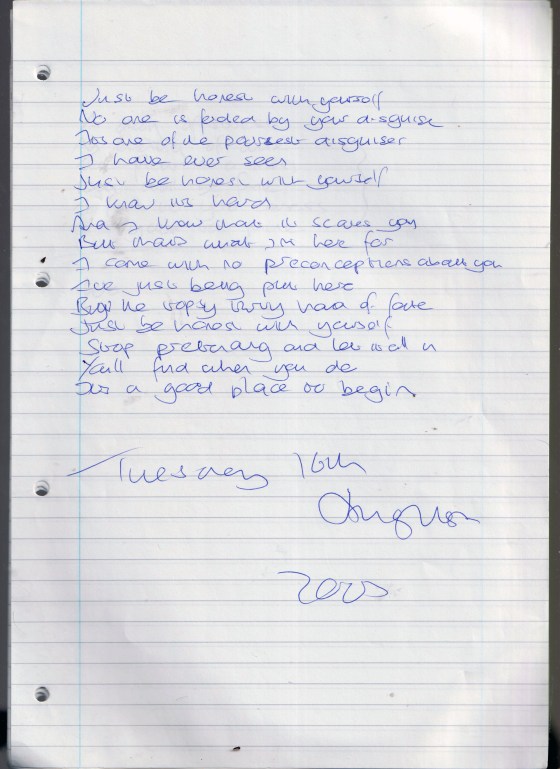 Just be honest with yourself
No one is fooled by your disguise
Its one of the poorest disguises
I have ever seen
Just be honest with yourself
I know its hard
And I know that it scares you
But thats what I'm here for
I come with no preconceptions about you
I've just being put here
By the topsy turvy hand of fate
Just be honest with yourself
Stop pretending and let it all in
You'll find when you do
Its a good place to begin
Tuesday 16th
August
2005